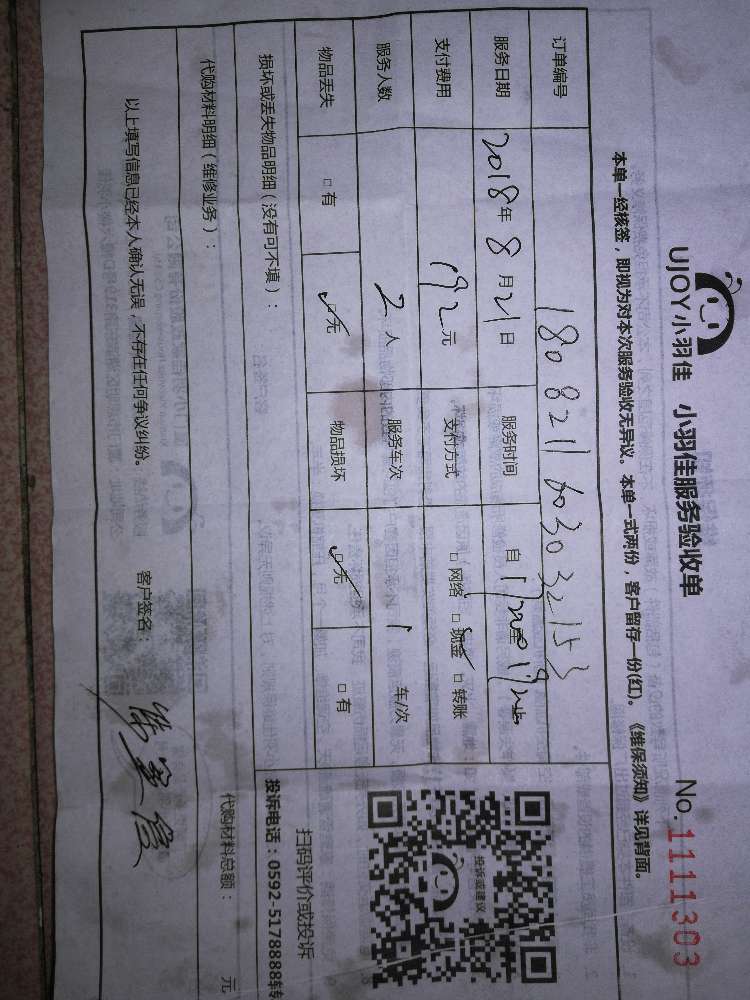 UJOY小羽佳 小羽佳服务验收单 No.1111303
本单一经核签，即视为对本次服务验收无异议。本单一式两份，客户留存一份(红)。《维保须知》详见背面。
订单编号
服务日期 2018年8月21日 服务时间 自
支付费用 192元 支付方式 □网络 □现金 □转账
服务人数 2人 服务车次 1车/次
物品丢失 □有 □无 物品损坏 □无 □有
损坏或丢失物品明细（没有可不填）：
投诉或建议
扫码评价或投诉
投诉电话：0592-5178888转
代购材料明细（维修业务）： 代购材料总额： 元
以上填写信息已经本人确认无误，不存在任何争议纠纷。 客户签名：